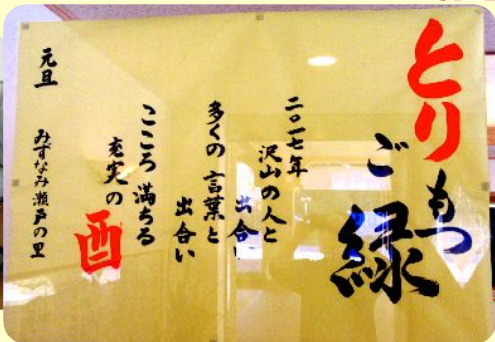 とりもつ
ご縁
二〇一七年
沢山の人と
出合い
多くの言葉と
出合い
こころ満ちる
充実の
酉
元旦
みずなみ瀬戸の里